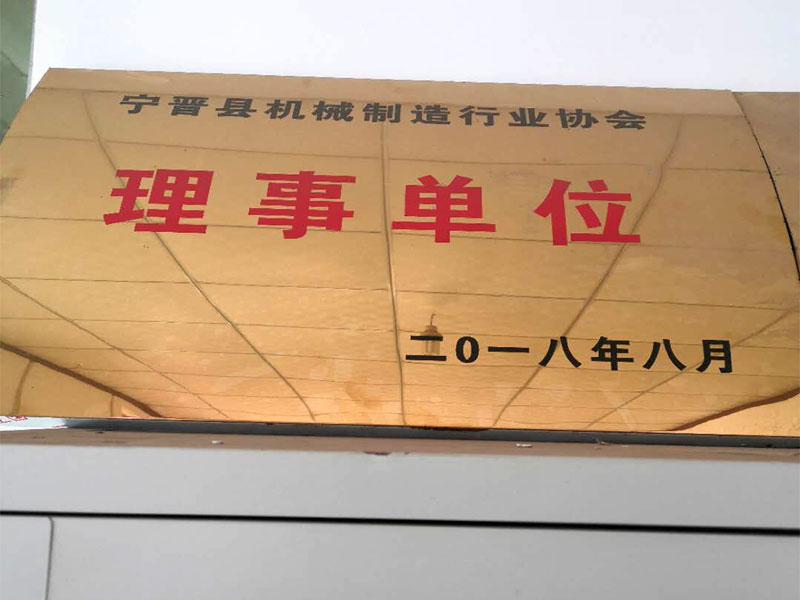 宁晋县机械制造行业协会
理事单位
二0一八年八月